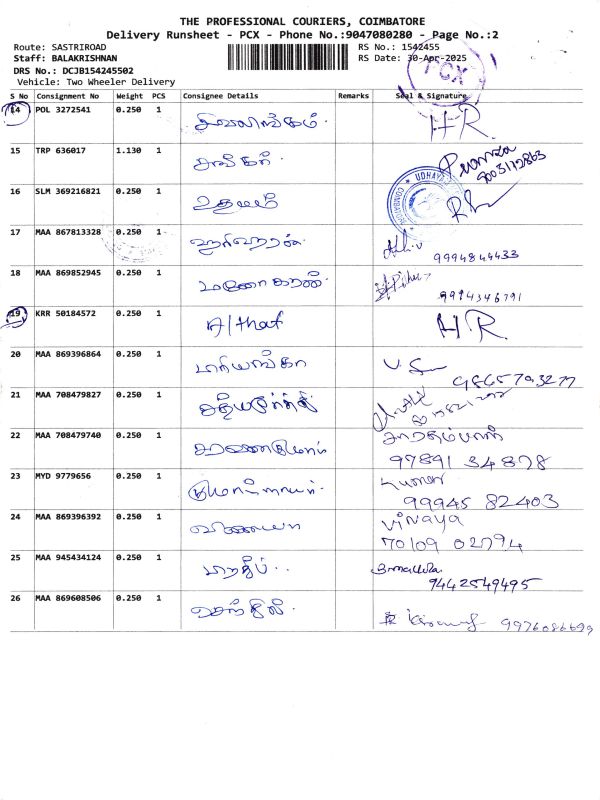 THE PROFESSIONAL COURIERS, COIMBATORE
Delivery Runsheet - PCX - Phone No.:9047080280 - Page No.:2
Route: SASTRIROAD
RS No.: 1542455
Staff: BALAKRISHNAN
RS Date: 30-Apr-2025
DRS No.: DCJB154245502
Vehicle: Two Wheeler Delivery
PCX
S No Consignment No Weight PCS Consignee Details Remarks Seal & Signature
14 POL 3272541 0.250 1 சிவலிங்கம். HR
15 TRP 636017 1.130 1 9003112863
16 SLM 369216821 0.250 1 உதயம் UDHAYA
17 MAA 867813328 0.250 1 ஹரிஹரன். 9994844433
18 MAA 869852945 0.250 1 மனோகரன். 9994346791
19 KRR 50184572 0.250 1 HR
20 MAA 869396864 0.250 1 பிரியங்கா
21 MAA 708479827 0.250 1
22 MAA 708479740 0.250 1 சரவணகுமார் 97891 34878
23 MYD 9779656 0.250 1 99945 82403
24 MAA 869396392 0.250 1 வினயா Vinaya
70109 02794
25 MAA 945434124 0.250 1 பிரதீப். . 9442549495
26 MAA 869608506 0.250 1 செந்தில். 9976086699